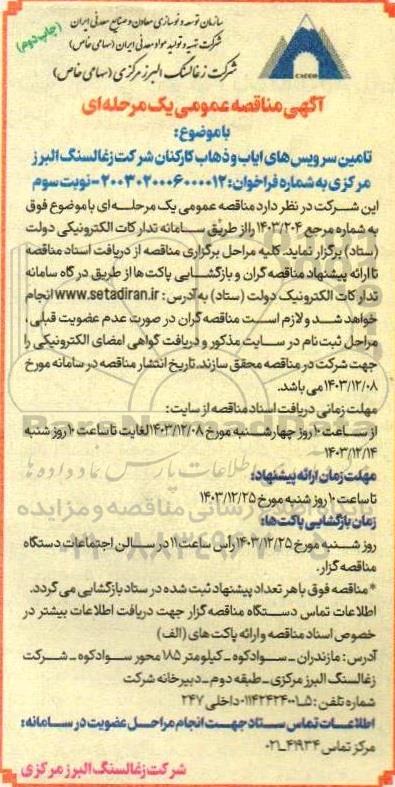 سازمان توسعه و نوسازی معادن و صنایع معدنی ایران
شرکت تهیه و تولید مواد معدنی ایران (سهامی خاص)
شرکت زغالسنگ البرز مرکزی (سهامی خاص)
(چاپ دوم)
CACCO
آگهی مناقصه عمومی یک مرحله‌ای
با موضوع:
تامین سرویس‌های ایاب و ذهاب کارکنان شرکت زغالسنگ البرز
مرکزی به شماره فراخوان: ۲۰۰۳۰۲۰۰۰۶۰۰۰۰۱۲ - نوبت سوم
این شرکت در نظر دارد مناقصه عمومی یک مرحله‌ای با موضوع فوق
به شماره مرجع ۱۴۰۳/۲۰۴ را از طریق سامانه تدارکات الکترونیکی دولت
(ستاد) برگزار نماید. کلیه مراحل برگزاری مناقصه از دریافت اسناد مناقصه
تا ارائه پیشنهاد مناقصه گران و بازگشایی پاکت‌ها از طریق درگاه سامانه
تدارکات الکترونیک دولت (ستاد) به آدرس: www.setadiran.ir انجام
خواهد شد و لازم است مناقصه گران در صورت عدم عضویت قبلی،
مراحل ثبت نام در سایت مذکور و دریافت گواهی امضای الکترونیکی را
جهت شرکت در مناقصه محقق سازند. تاریخ انتشار مناقصه در سامانه مورخ
۱۴۰۳/۱۲/۰۸ می باشد.
مهلت زمانی دریافت اسناد مناقصه از سایت:
از ساعت ۱۰ روز چهارشنبه مورخ ۱۴۰۳/۱۲/۰۸ لغایت تا ساعت ۱۰ روز شنبه
۱۴۰۳/۱۲/۱۴
مهلت زمان ارائه پیشنهاد:
تا ساعت ۱۰ روز شنبه مورخ ۱۴۰۳/۱۲/۲۵
زمان بازگشایی پاکت‌ها:
روز شنبه مورخ ۱۴۰۳/۱۲/۲۵ راس ساعت ۱۱ در سالن اجتماعات دستگاه
مناقصه گزار.
* مناقصه فوق با هر تعداد پیشنهاد ثبت شده در ستاد بازگشایی می گردد.
اطلاعات تماس دستگاه مناقصه گزار جهت دریافت اطلاعات بیشتر در
خصوص اسناد مناقصه و ارائه پاکت های (الف)
آدرس: مازندران - سوادکوه - کیلومتر ۱۸۵ محور سوادکوه - شرکت
زغالسنگ البرز مرکزی - طبقه دوم - دبیرخانه شرکت
شماره تلفن: ۵-۰۱۱۴۲۴۲۴۰۰۱ داخلی ۲۴۷
اطلاعات تماس ستاد جهت انجام مراحل عضویت در سامانه:
مرکز تماس ۴۱۹۳۴-۰۲۱
شرکت زغالسنگ البرز مرکزی